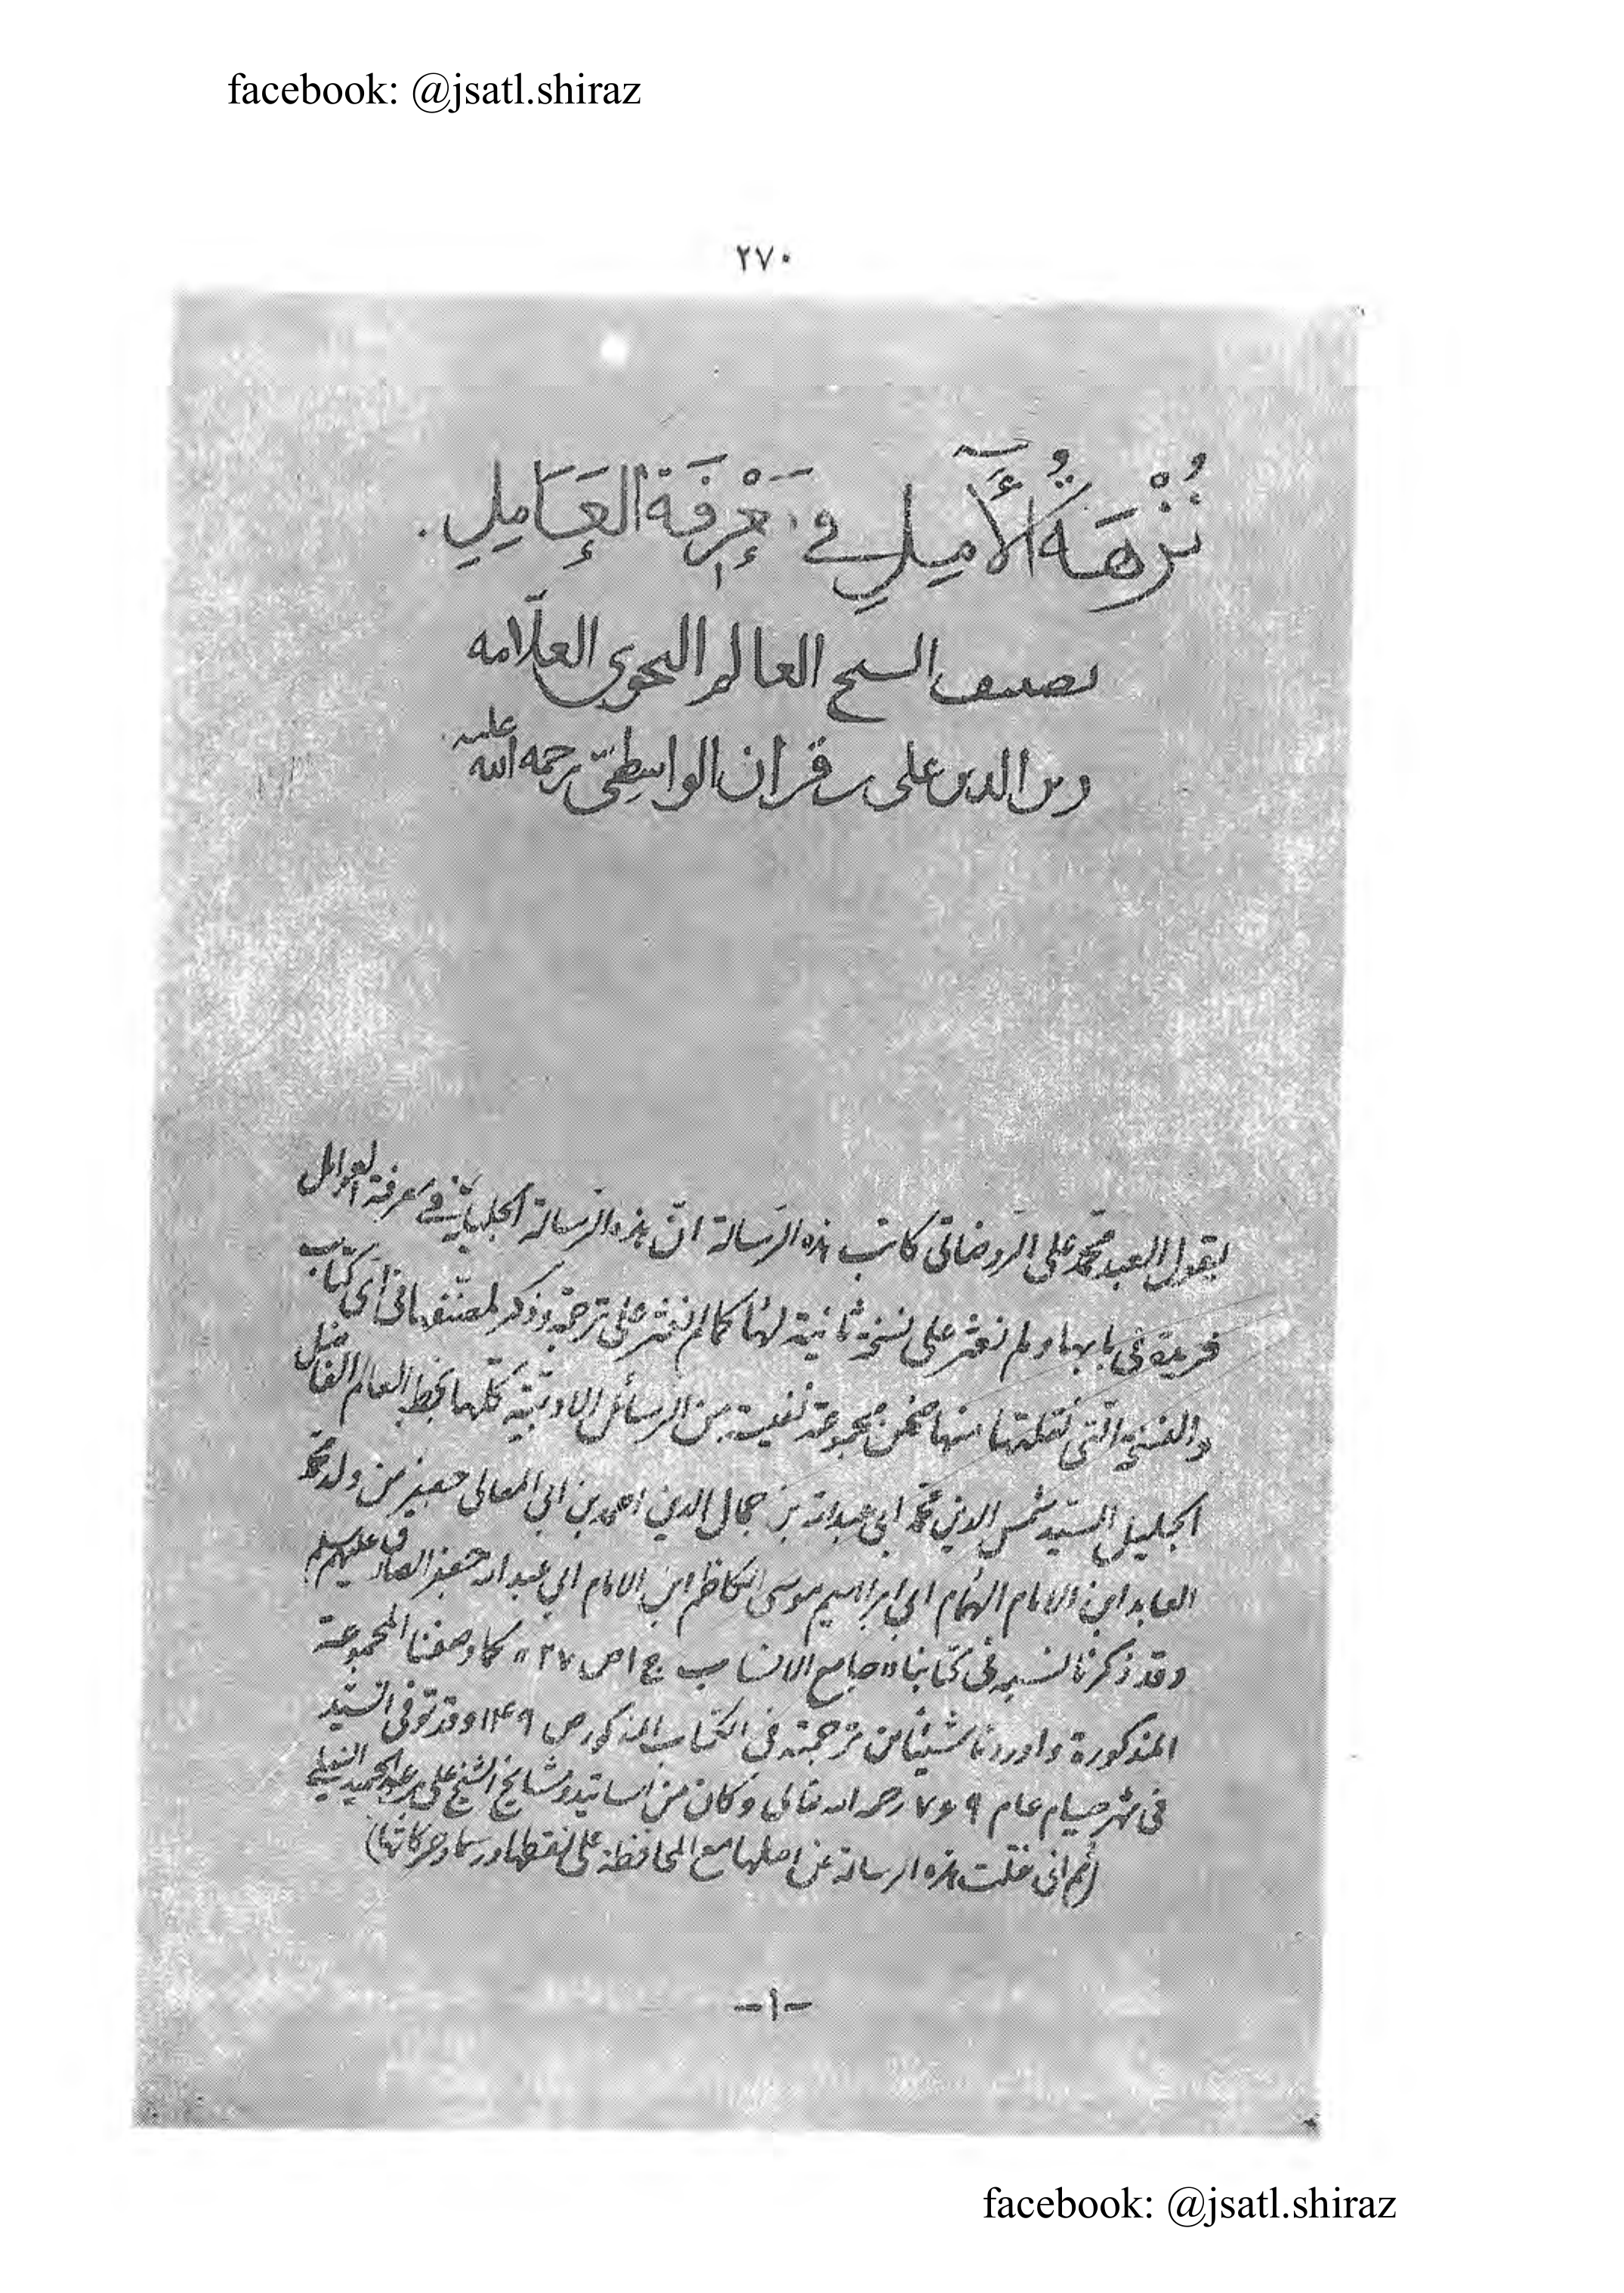 facebook: @jsatl.shiraz
۲۷۰
نُزْهَةُ الْأَمِلِ في مَعْرِفَةِ العَامِلِ.
تصنيف السيخ العالم النحوى العلّامه
زين الدين على بن قزان الواسِطىّ رحمه الله عليه
يقول العبد محمّد على الروضاتى كاتب هذه الرّسالة انّ هذه الرّسالة الجليلة في معرفة العوامل
فريدة فى بابها ولم نعثر على نسخة ثانية لها كما لم نعثر على ترجمة وذكر لمصنّفها فى أىّ كتاب
والنسخة الّتى نقلتها منها ضمن مجموعة نفيسة من الرسائل الادبيّة كلّها بخط العالم الفاضل
الجليل السيّد شمس الدين محمّد ابى عبدالله بن جمال الدين احمد بن ابى المعالى جعفر من ولد محمّد
العابد ابن الامام الهُمام ابى ابراهيم موسى الكاظم ابن الامام ابى عبدالله جعفر الصادق عليهم سلم
وقد ذكرنا نسبه فى كتابنا «جامع الانساب ج ١ ص ٢٧» كما وصفنا المجموعة
المذكورة واوردنا شيئاً من ترجمته فى الكتاب المذكور ص ١٤٩ وقد توفى السيّد
فى شهر صيام عام ٧٦٩ رحمه الله تعالى وكان من اساتيد ومشايخ الشيخ على بن عبدالحميد النيلى
(ثم انى نقلت هذه الرسالة عن اصلها مع المحافظة على نقطها ورسمها وحركاتها)
-١-
facebook: @jsatl.shiraz